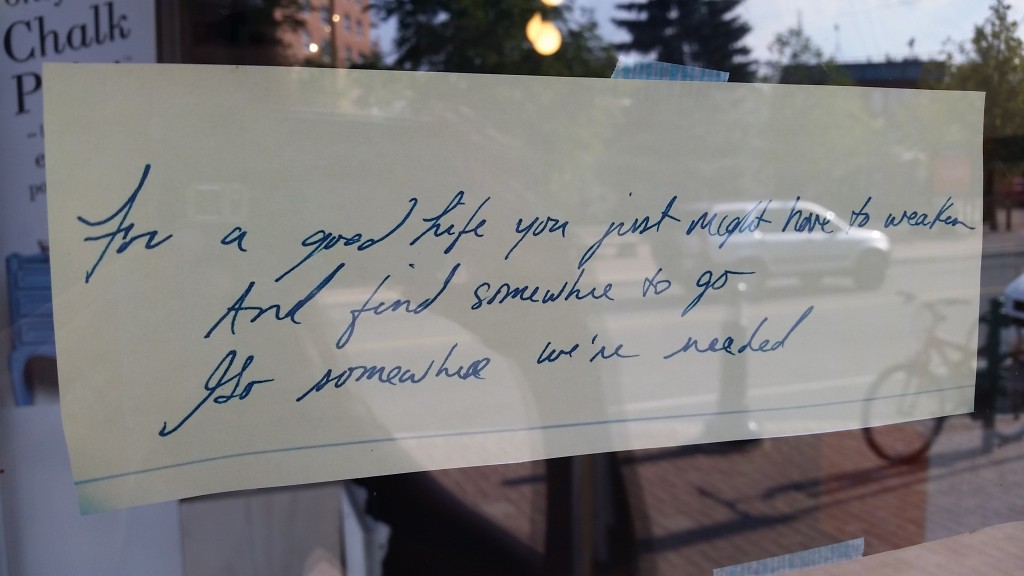 Chalk
For a good life you just might have to weaken
And find somewhere to go
Go somewhere we're needed